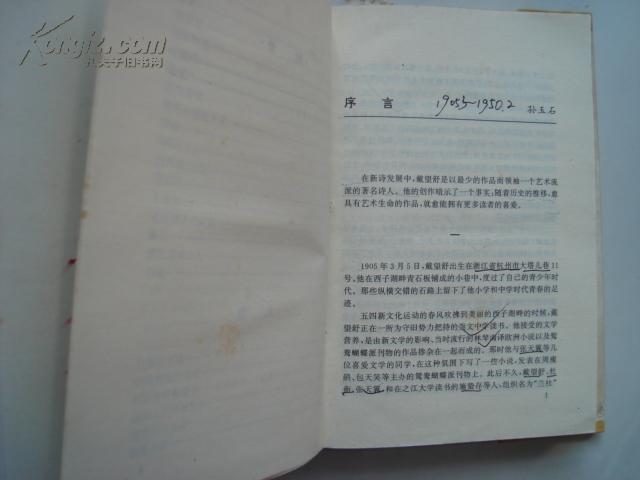 Kongfz.com
孔夫子旧书网
序 言 1905~1950.2 孙玉石
在新诗发展中，戴望舒是以最少的作品而领袖一个艺术流
派的著名诗人。他的创作暗示了一个事实：随着历史的推移，愈
具有艺术生命的作品，就愈能拥有更多读者的喜爱。
一
1905年3月5日，戴望舒出生在浙江省杭州市大塔儿巷11
号。他在西子湖畔青石板铺成的小巷中，度过了自己的青少年时
代。那些纵横交错的石路上留下了他小学和中学时代青春的足
迹。
五四新文化运动的春风吹拂到美丽的西子湖畔的时候，戴
望舒正在一所为守旧势力把持的宗文中学读书。他接受的文学
营养，是由新文学的影响、当时流行的林琴南译欧洲小说以及鸳
鸯蝴蝶派刊物的作品掺杂在一起而成的。那时他与张天翼等几
位喜爱文学的同学，在这种氛围下写了一些小说，发表在周瘦
鹃、包天笑等主办的鸳鸯蝴蝶派刊物上。此后不久，戴望舒、杜
衡、张天翼、和在之江大学读书的施蛰存等人，组织名为“兰社”
1